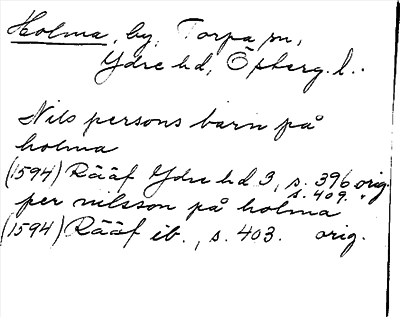 Holma, by, Torpa sn,
Ydre hd, Östberg. l..
Nils persons barn på
holma
(1594) Rääf Ydre hd 3, s. 396 orig.
s. 409. "
per nilsson på holma
(1594) Rääf ib., s. 403. orig.